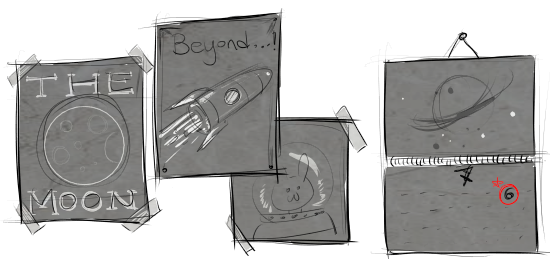 THE
MOON
Beyond...!
7
6